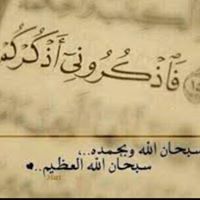 فَاذْكُرُونِي أَذْكُرْكُمْ
سبحان الله وبحمده..،
سبحان الله العظيم..